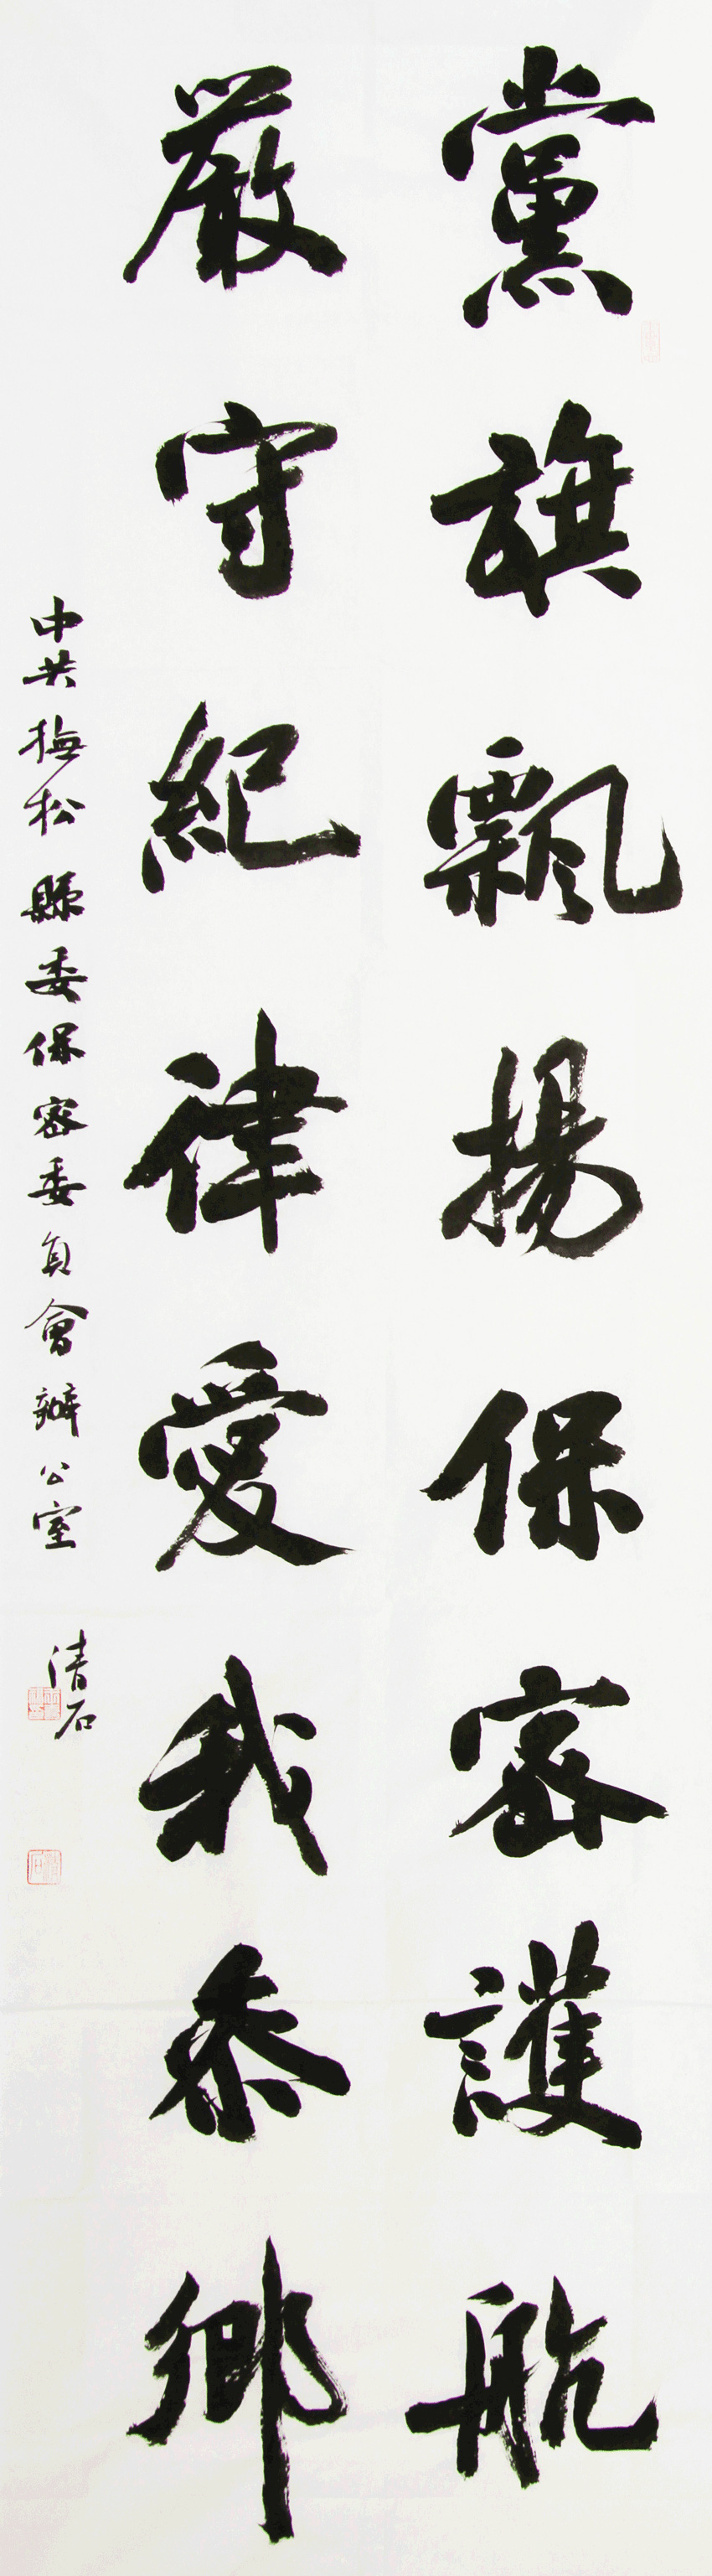 黨旗飄揚保密護航
嚴守紀律愛我參鄉
中共撫松縣委保密委員會辦公室
清石